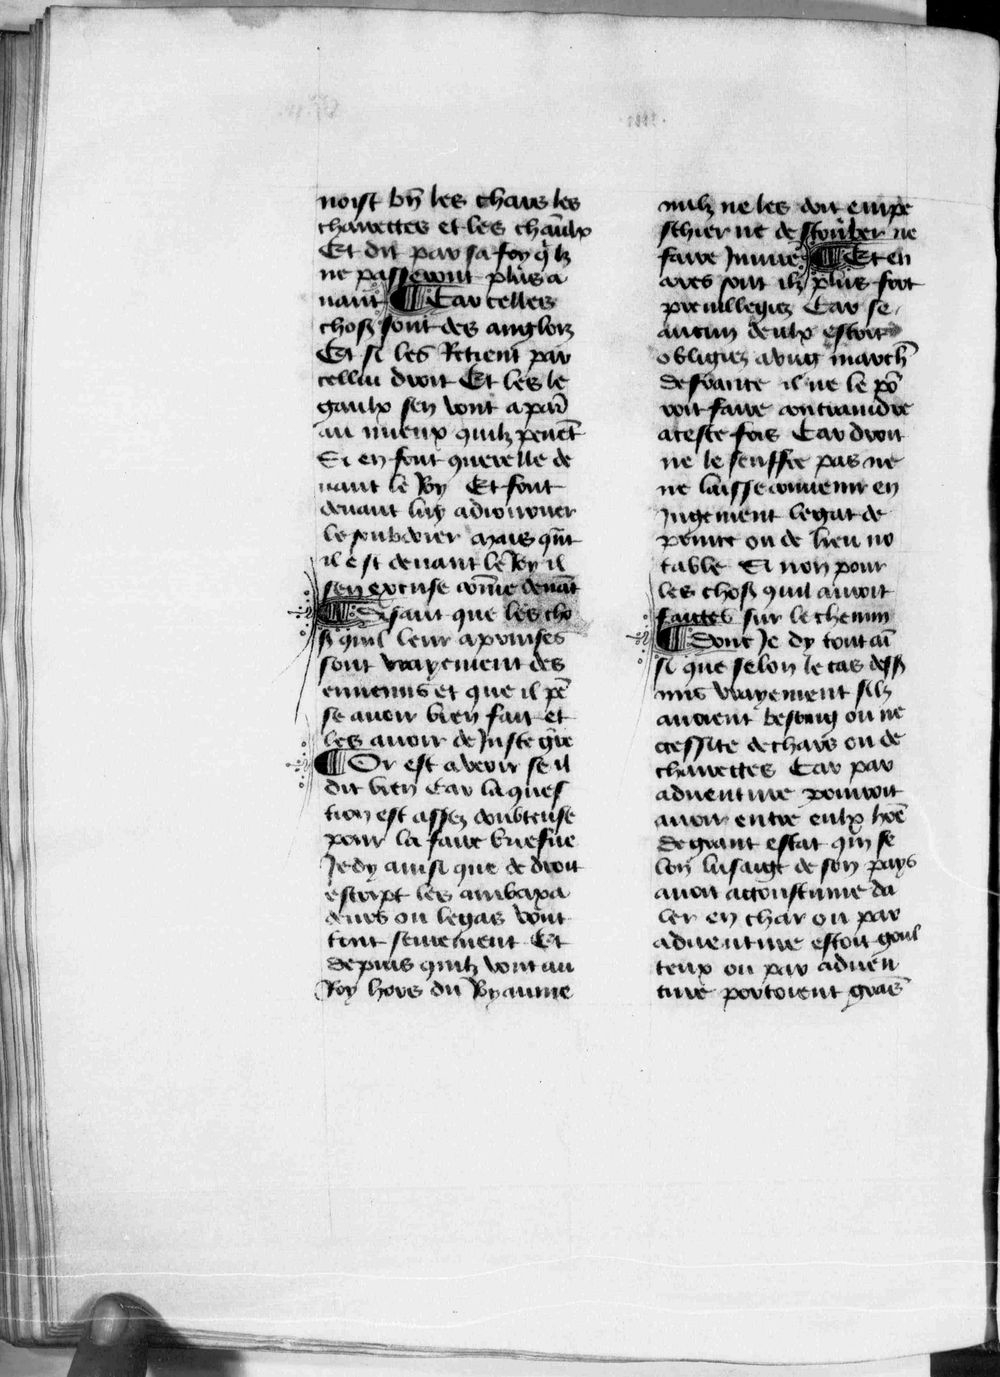 noist bn̄ les chars les
charrettes et les chāulx
Et dit par sa foy q̄lz
ne passeront plus a
uant ¶ Car celles
choß sont des angloiz
Et si les Retient par
cellui droit Et les le
gaulx sen vont a par̄
au mieux quilz peuēt
Si en font querelle de
uant le Roy Et font
deuant luy adiourner
le souldoier Mais qn̄t
il est deuant le Roy il
sen excuse com̄e deuāt
¶ Disant que les cho
ß quil leur a prinses
sont vrayement des
ennemis et que il pē
se auoir bien fait et
les auoir de Juste gr̄e
¶ Or est a veoir se il
dit bien Car la ques
tion est assez doubteuse
pour la faire briefue
Je dy ainsi que de droit
escript les ambaxa
deurs ou legas vont
tout seurement Et
depuis quilz vont au
Roy hors du Royaume
nulz ne les doit empe
schier ne destourber ne
faire Iniure ¶ Et en
cores sont ilz plus fort
preuillegiez Car se
aucun deulx estoit
obligiez a vng march̄
de france il ne le po
roit faire contraindre
a ceste fois Car droit
ne le seuffre pas ne
ne laisse conuenir en
Jugement legat de
prince ou de lieu no
table Si non pour
les choß quil auroit
faictes sur le chemin
¶ Donc Je dy tout aī
si que selon le cas deß
mis vrayement silz
auoient besoing ou ne
cessite de chars ou de
charrettes Car par
aduenture pouroit
auoir entre eulx hōe
de grant estat qui se
lon lusaige de son pays
auoit accoustume da
ler en char ou par
aduenture estoit goul
teux ou par aduen
ture portoient grās